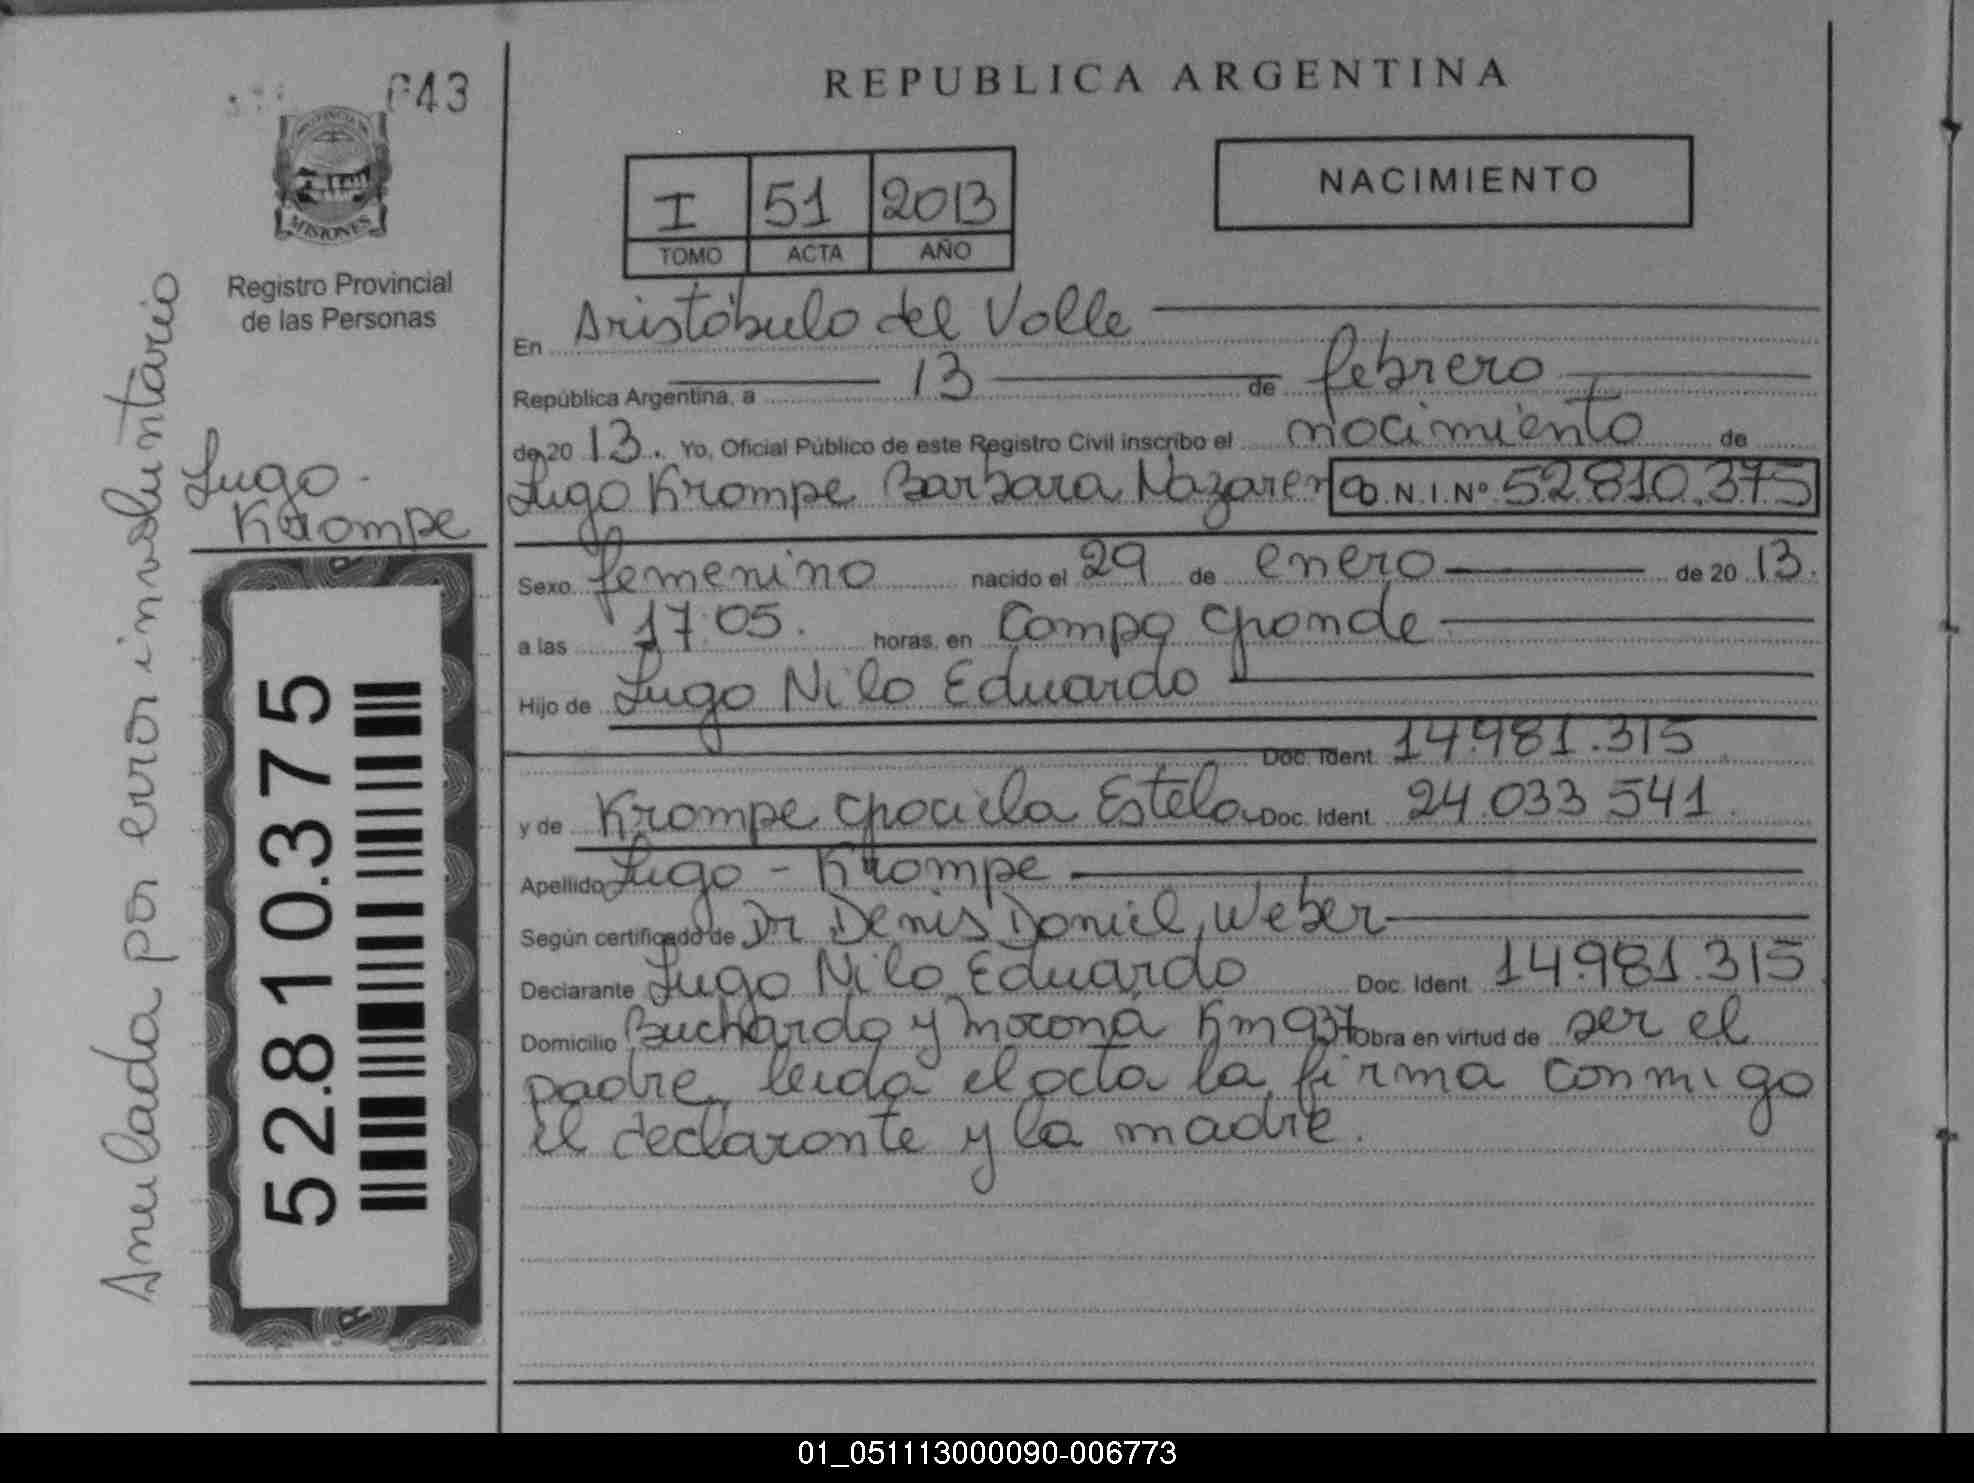 043
PROVINCIA DE
MISIONES
Registro Provincial
de las Personas
Lugo -
Krompe
Anulada por error involuntario
52.810.375
REPUBLICA ARGENTINA
I 51 2013
TOMO ACTA AÑO
NACIMIENTO
En Aristóbulo del Valle
República Argentina, a 13 de febrero
de 20 13. Yo, Oficial Público de este Registro Civil inscribo el nacimiento de
Lugo Krompe Barbara Nazarena D.N.I.Nº 52.810.375
Sexo femenino nacido el 29 de enero de 20 13.
a las 17:05. horas, en Campo Grande
Hijo de Lugo Nilo Eduardo
Doc. Ident. 14.981.315
y de Krompe Graciela Estela Doc. Ident. 24.033 541.
Apellido Lugo - Krompe
Según certificado de Dr Denis Daniel Weber
Declarante Lugo Nilo Eduardo Doc. Ident. 14.981.315
Domicilio Buchardo y Moconá Km 937 Obra en virtud de ser el
padre, leida el acta la firma conmigo
el declarante y la madre.
01_051113000090-006773